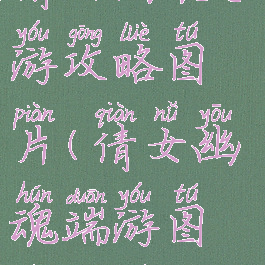 yóu gōng lüè tú
游攻略图
piàn qiàn nǚ yōu
片(倩女幽
hún duān yóu tú
魂端游图